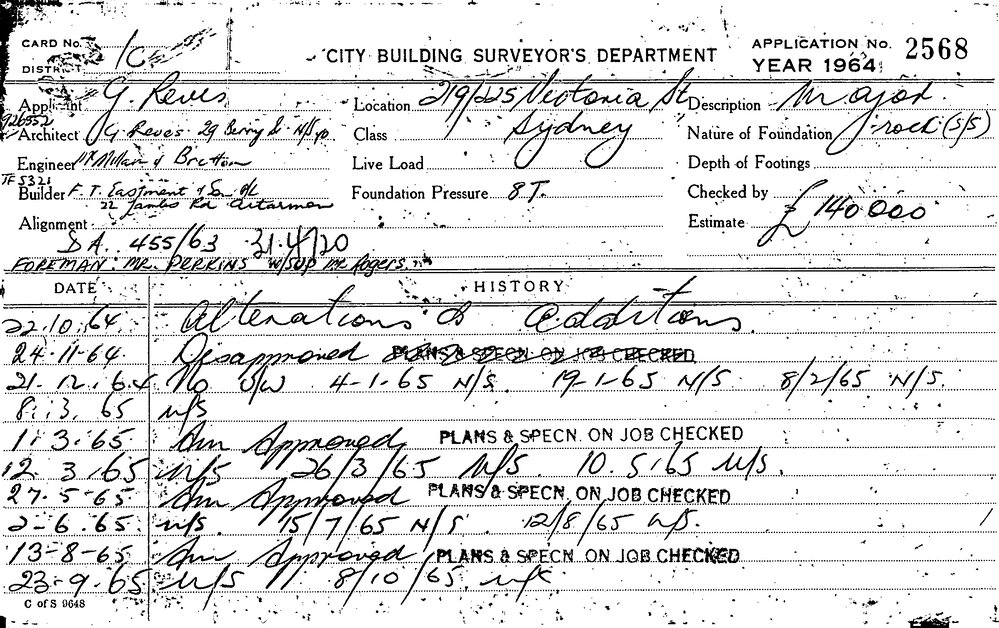 CARD No. 1C
DISTRICT
CITY BUILDING SURVEYOR'S DEPARTMENT
APPLICATION No. 2568
YEAR 1964
Applicant G. Reves
Location 219/225 Victoria St
Description Major
926552
Architect G Reves. 29 Berry St N/Syd
Class Sydney
Nature of Foundation rock (S/S)
Engineer McMillan & Britton
Live Load
Depth of Footings
TF 5321
Builder F. T. Eastment & Son P/L
22 James Rd Artarmon
Foundation Pressure 8T.
Checked by
Alignment
Estimate £140000
D A. 455/63 31.4/20
FOREMAN: MR. PERKINS W/SUP Mr Rogers.
DATE HISTORY
22.10.64 Alterations & additions.
24-11-64. Disapproved PLANS & SPECN. ON JOB CHECKED
21-12.64 No U/W 4-1-65 N/S. 19-1-65 N/S. 8/2/65 N/S.
8.3.65 N/S
11.3.65 Am Approved PLANS & SPECN. ON JOB CHECKED
12.3.65 N/S 26/3/65 N/S. 10.5.65 N/S.
27.5-65 Am Approved PLANS & SPECN. ON JOB CHECKED
2-6.65. N/S. 15/7/65 N/S. 12/8/65 N/S.
13-8-65 Am Approved PLANS & SPECN. ON JOB CHECKED
23-9.65 N/S 8/10/65. N/S
C of S 9648